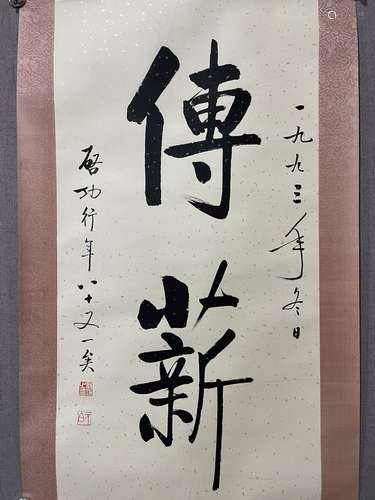 一九九三年冬日
傳薪
啓功行年八十又一矣